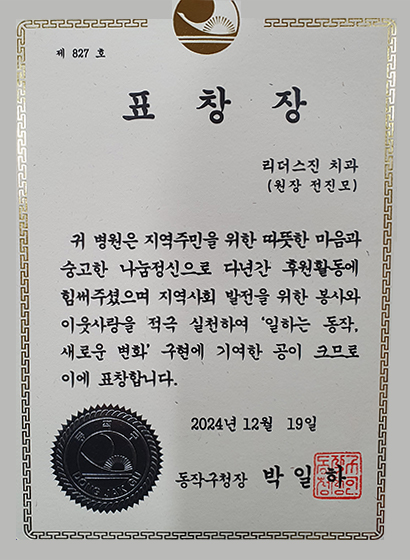 제 827 호
표 창 장
리더스진 치과
(원장 전진모)
귀 병원은 지역주민을 위한 따뜻한 마음과
숭고한 나눔정신으로 다년간 후원활동에
힘써주셨으며 지역사회 발전을 위한 봉사와
이웃사랑을 적극 실천하여 '일하는 동작,
새로운 변화' 구현에 기여한 공이 크므로
이에 표창합니다.
2024년 12월 19일
동작구청장 박 일 하